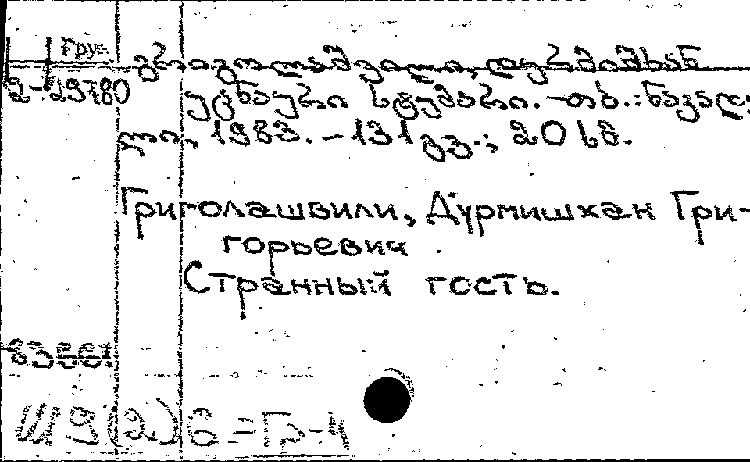 Груз
გრიგოლაშვილი, დურმიშხან
2-29780
უცნაური სტუმარი. - თბ.: ნაკადუ-
ლი, 1983. - 131 გვ.; 20 სმ.
Григолашвили, Дурмишхан Гри-
горьевич
Странный гость.
83561
Ш9(2)6=Гр-4